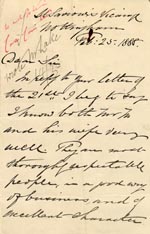 Nottingham
25. 1888
Dear Sir
In reply to your letter of
the 21st I beg to say
I know both Mr
and his wife very
well. They are most
thoroughly respectable
people, in a good way
of business and of
excellent character